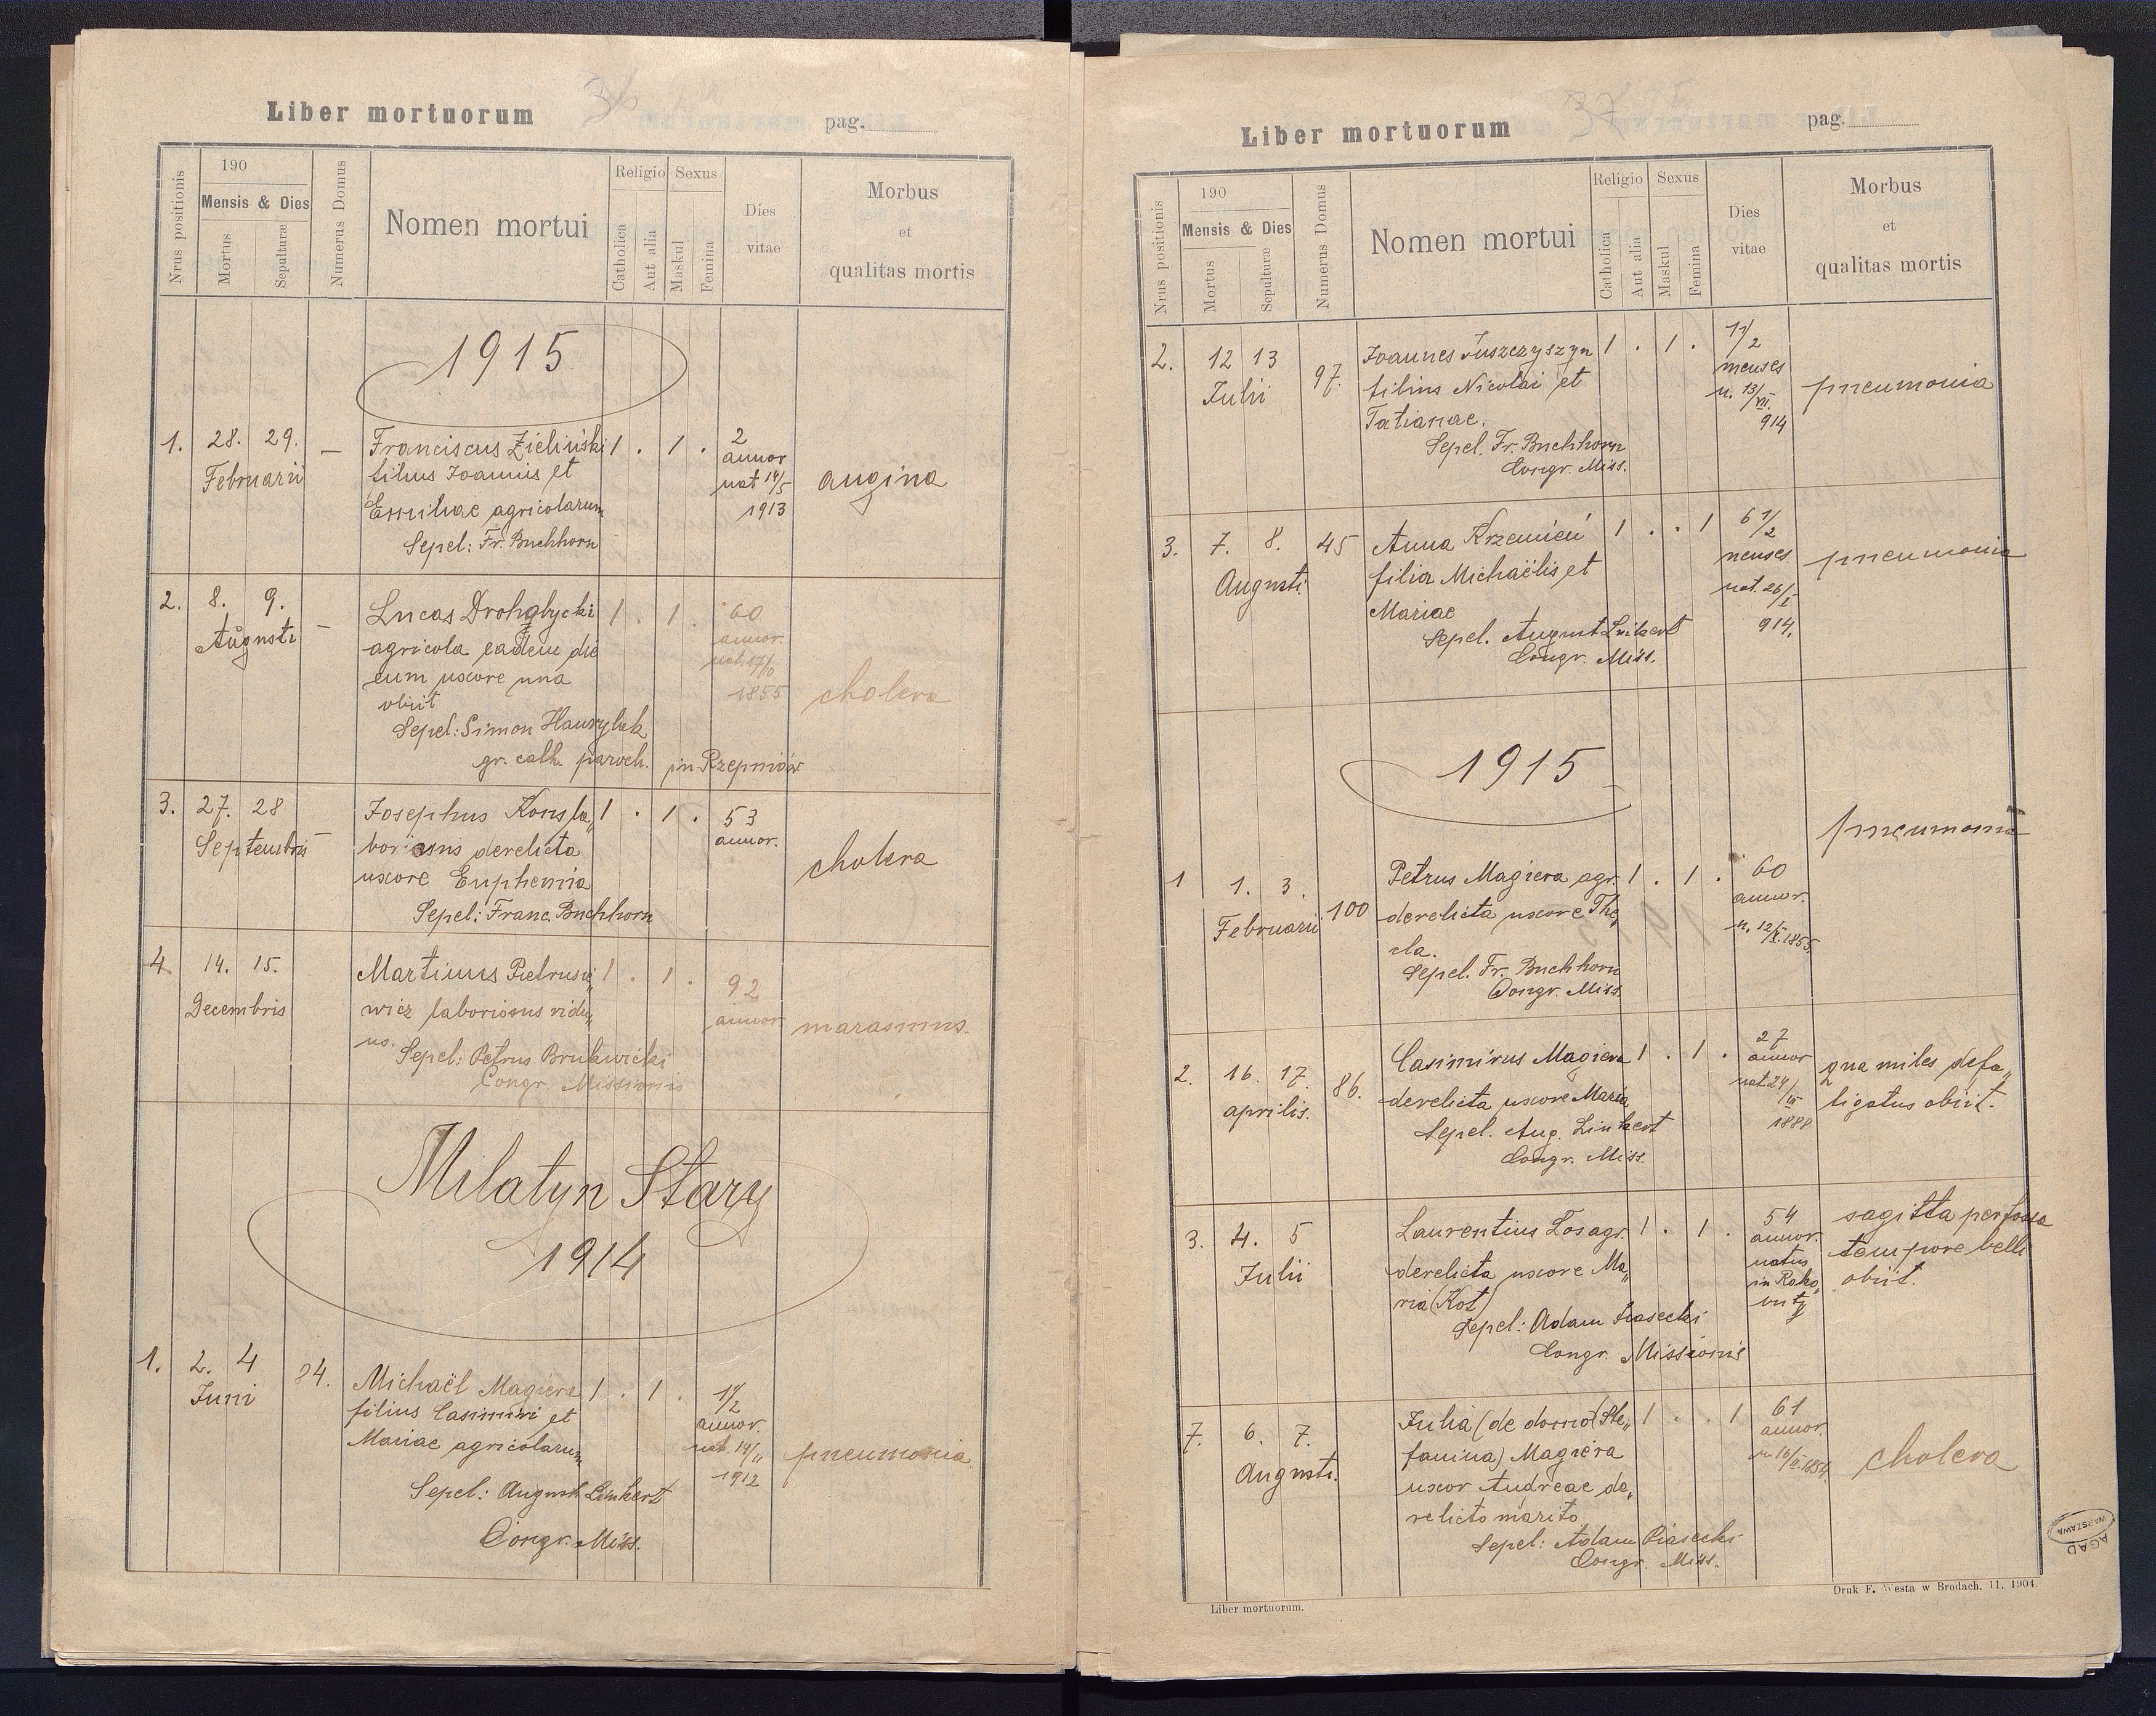 Liber mortuorum
36
pag.
Nrus positionis
190
Mensis & Dies
Mortus
Sepulturæ
Numerus Domus
Nomen mortui
Religio
Catholica
Aut alia
Sexus
Maskul
Femina
Dies
vitae
Morbus
et
qualitas mortis
1915
1. 28. 29. — Franciscus Zieliński 1 . 1 . 2
Februarii filius Joannis et annor
Emiliae agricolarum nat 14/5
1913
angina
Sepel: Fr. Buchhorn
2. 8. 9. — Lucas Drohobycki 1 . 1 . 60
Augusti agricola eadem die annor.
cum uxore una
obiit
1855
cholera
Sepel: Simon Hawryluk
gr. cath. paroch. in Rzepniów
3. 27. 28 — Josephus 1 . 1 . 53
Septembris boriosus derelicta annor.
uxore Euphemia
cholera
Sepel: Franc. Buchhorn
4. 14. 15. Martinus Pietrusie„ 1 . 1 . 92
Decembris wicz laboriosus vidu„ annor
us.
marasmus.
Sepel: Petrus
Congr. Missionis
Milatyn Stary
1914
1. 2. 4 84. Michaël Magiera 1 . 1 . 1 1/2
Juni filius Casimiri et annor.
Mariae agricolarum nat. 14/11
1912
pneumonia
Sepel: August Linkert
Congr. Miss.
Liber mortuorum
37
pag.
Nrus positionis
190
Mensis & Dies
Mortus
Sepulturæ
Numerus Domus
Nomen mortui
Religio
Catholica
Aut alia
Sexus
Maskul
Femina
Dies
vitae
Morbus
et
qualitas mortis
2. 12 13 97. Joannes Juszczyszyn 1 . 1 . 1 1/2
Julii filius Nicolai et menses
Tatianae. n. 13/VII.
914
pneumonia
Sepel. Fr. Buchhorn
Congr. Miss.
3. 7. 8. 45 Anna Krzemień 1 . . 1 6 1/2
Augusti filia Michaëlis et menses
Mariae nat. 26/I
914.
pneumonia
Sepel. August Linkert
Congr. Miss.
1915
1 1. 3. 100 Petrus Magiera agr. 1 . 1 . 60
Februarii derelicta uxore The„ annor.
cla. 1855.
pneumonia
Sepel. Fr. Buchhorn
Congr. Miss.
2. 16. 17. 86. Casimirus Magiera 1 . 1 . 27
aprilis. derelicta uxore Maria annor
nat 24/III
1888
qua miles defa„
tigatus obiit.
Sepel. Aug. Linkert
Congr. Miss.
3. 4. 5 Laurentius Łos agr. 1 . 1 . 54
Julii derelicta uxore Ma„ annor.
ria (Kot) natus
in Rako„
buty
sagitta perfossa
tempore belli
obiit.
Sepel: Adam Piasecki
Congr. Missionis
7. 6. 7. Julia (de domo Ste„ 1 . . 1 61
Augusti. fanina) Magiera annor.
uxor Andreae de„ 1854
relicto marito
cholera
Sepel: Adam Piasecki
Congr. Miss.
Liber mortuorum.
Druk F. Westa w Brodach. 11. 1904.
AGAD
WARSZAWA